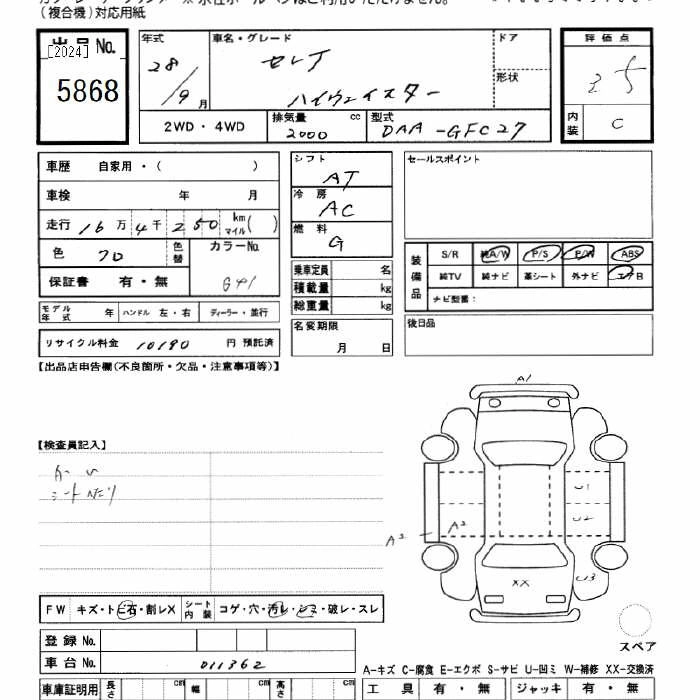 (複合機)対応用紙
[2024]
出品 No.
5868
年式
28/9 月
車名・グレード
セレナ
ハイウェイスター
ドア
形状
評価点
3.5
内装
C
2WD・4WD
排気量 cc
2000
型式
DAA-GFC27
車歴 自家用・( )
車検 年 月
走行 16万4千250 km マイル( )
色 クロ
色替
カラーNo.
G41
保証書 有・無
モデル年式 年
ハンドル 左・右
ディーラー・並行
リサイクル料金 10190 円 預託済
シフト
AT
冷房
AC
燃料
G
乗車定員 名
積載量 kg
総重量 kg
名変期限
月 日
セールスポイント
装備品
S/R 純A/W P/S P/W ABS
純TV 純ナビ 革シート 外ナビ エアB
ナビ型番:
後日品
【出品店申告欄(不良箇所・欠品・注意事項等)】
【検査員記入】
A-U
シートヘタリ
A1
U1
U2
U3
A2
A2
XX
FW キズ・トビ石・割レX
シート内装 コゲ・穴・汚レ・シミ・破レ・スレ
スペア
登録 No.
車台 No. 011362
A-キズ C-腐食 E-エクボ S-サビ U-凹ミ W-補修 XX-交換済
車庫証明用 長さ cm 幅 cm 高さ cm
工具 有・無 ジャッキ 有・無